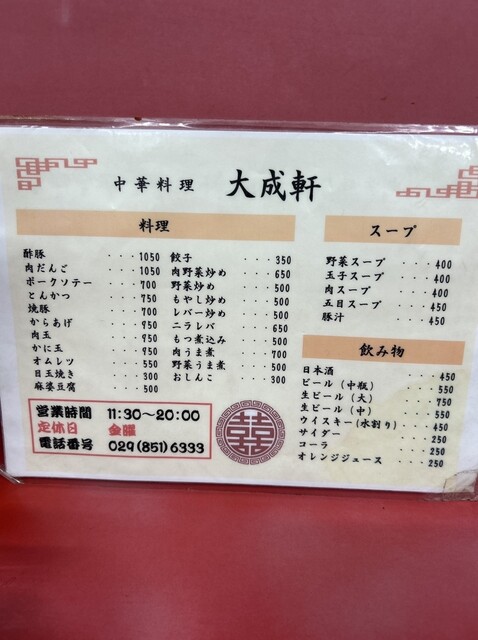 中華料理 大成軒
料理
酢豚 ・・・1050
肉だんご ・・・1050
ポークソテー ・・・700
とんかつ ・・・750
焼豚 ・・・700
からあげ ・・・750
肉玉 ・・・750
かに玉 ・・・750
オムレツ ・・・550
目玉焼き ・・・300
麻婆豆腐 ・・・500
餃子 ・・・350
肉野菜炒め ・・・650
野菜炒め ・・・500
もやし炒め ・・・500
レバー炒め ・・・500
ニラレバ ・・・650
もつ煮込み ・・・500
肉うま煮 ・・・700
野菜うま煮 ・・・500
おしんこ ・・・300
スープ
野菜スープ ・・・400
玉子スープ ・・・400
肉スープ ・・・400
五目スープ ・・・450
豚汁 ・・・450
飲み物
日本酒 ・・・450
ビール（中瓶） ・・・550
生ビール（大） ・・・750
生ビール（中） ・・・550
ウイスキー(水割り) ・・・450
サイダー ・・・250
コーラ ・・・250
オレンジジュース ・・・250
営業時間 11:30～20:00
定休日 金曜
電話番号 029(851)6333
囍